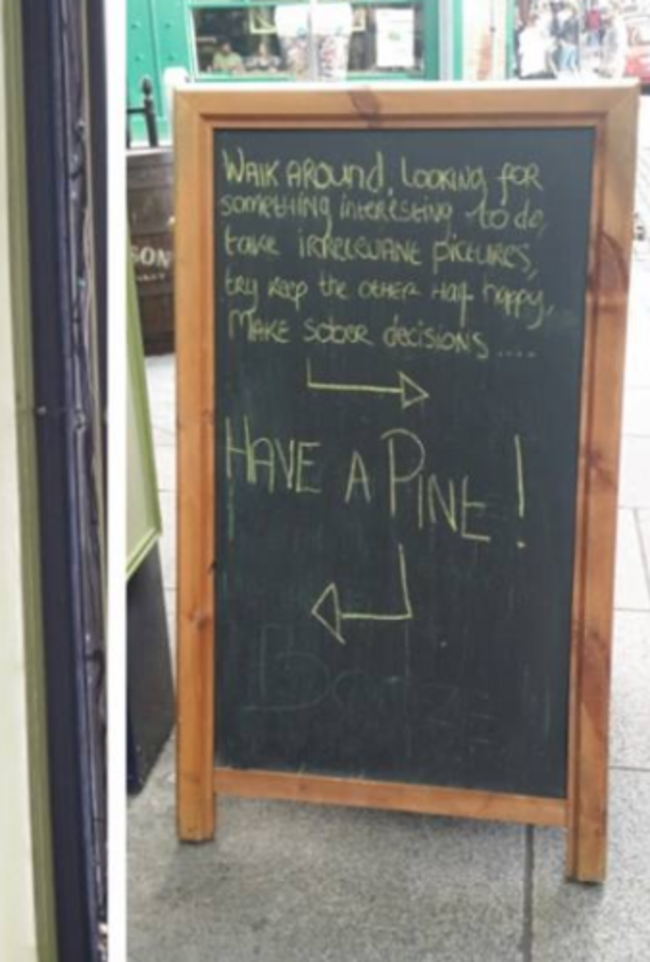 SON
WALK AROUND, LOOKING FOR
something interesting to do,
take irrelevant pictures,
try keep the other half happy,
MAKE sober decisions ....
HAVE A PINE!
Booze